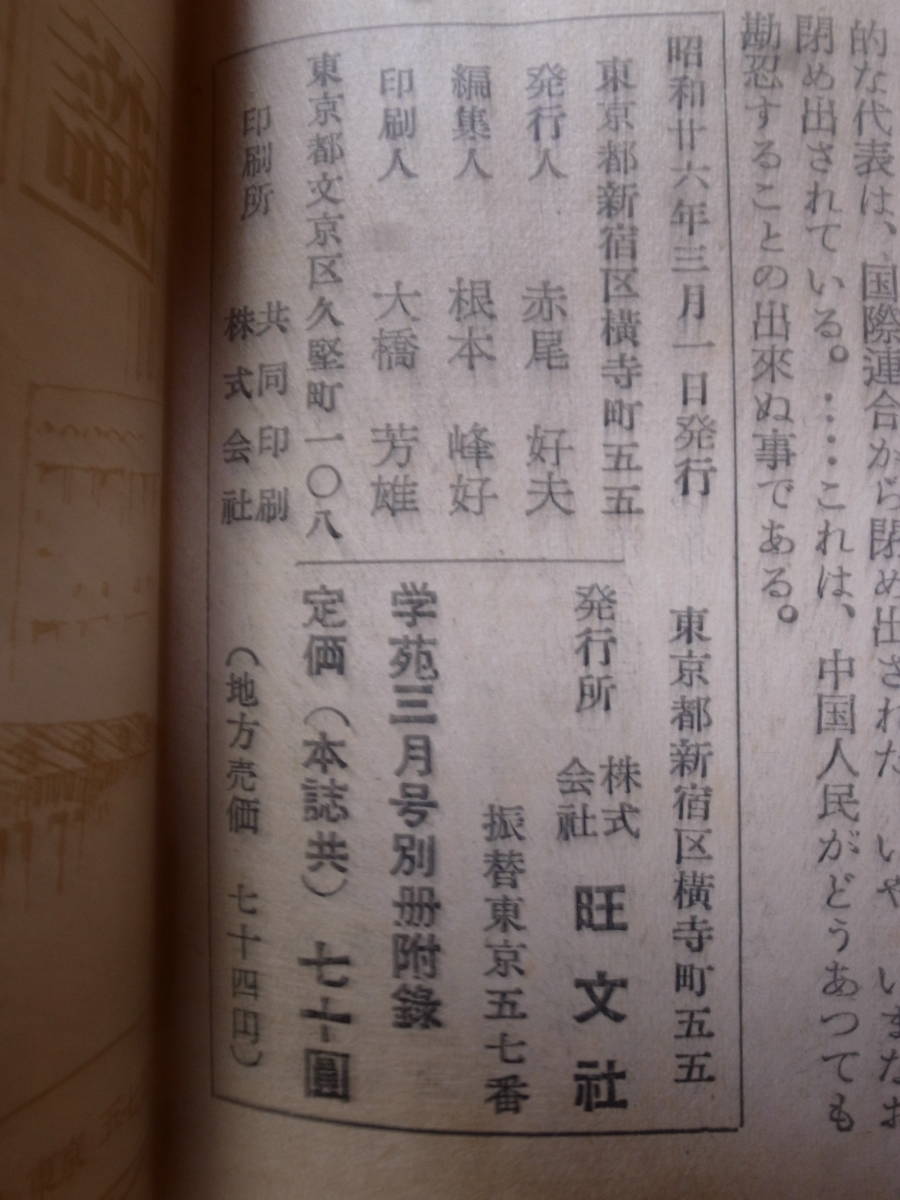 的な代表は、国際連合から閉め出された いや いまなお
閉め出されている。……これは、中国人民がどうあつても
勘忍することの出來ぬ事である。
昭和廿六年三月一日発行
東京都新宿区横寺町五五
発行人 赤尾 好夫
編集人 根本 峰好
印刷人 大橋 芳雄
東京都文京区久堅町一〇八
印刷所 共同印刷
株式会社
東京都新宿区横寺町五五
発行所 株式
会社 旺文社
振替東京五七番
学苑三月号別册附錄
定価（本誌共）七十圓
（地方売価 七十四円）